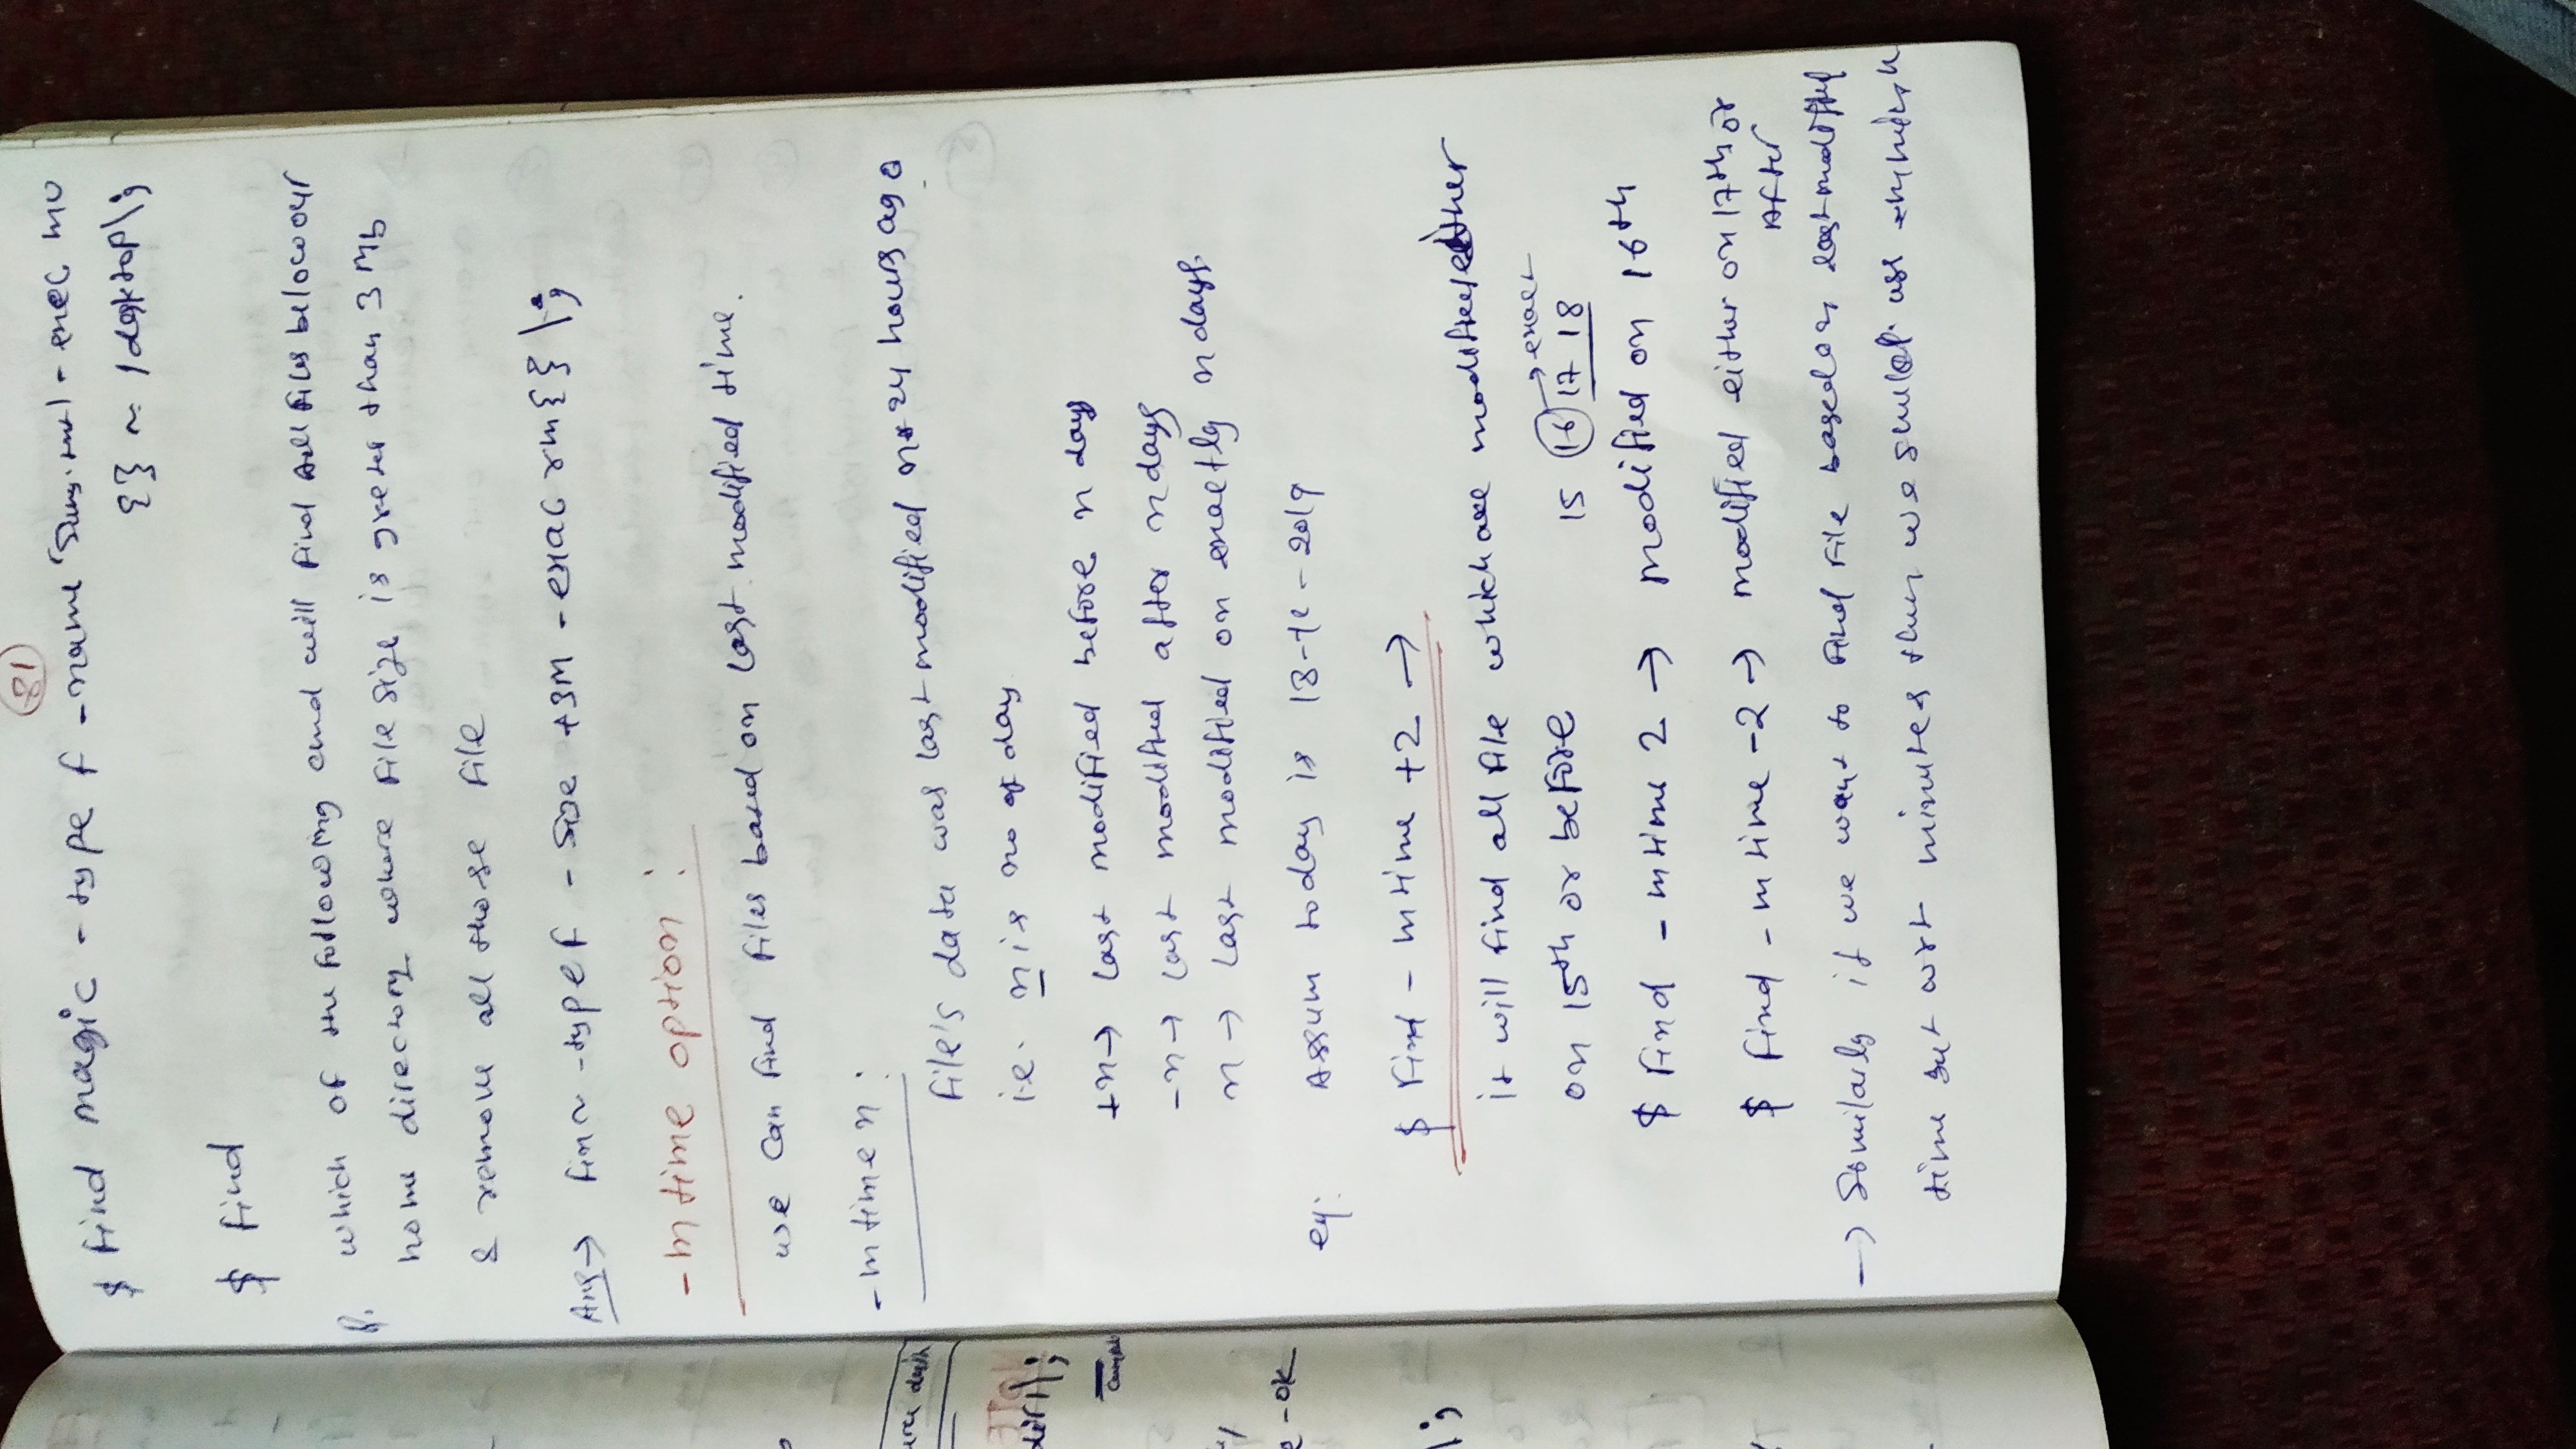 81
$ find magic - type f - name 'Sunny.txt' - exec mv
{} ~ /desktop\;
$ find
Q. which of the following cmd will find all files below our
home directory where file size is greter than 3 Mb
& remove all those file
Ans → fin ~ -type f - Size +3M - exac rm{} \;
- m time option :
we can find files based on last modified time.
- m time n :
file's data was last modified n* 24 hours ago
i.e. n is no of day
+n → last modified before n days
-n → last modified after n days
n → last modified on exactly n days.
eg: Assum today is 18-11-2019
$ find - mtime +2 →
it will find all file which are modified either
on 15th or before 15 16 17 18 → exact
$ find - mtime 2 → modified on 16th
$ find - mtime -2 → modified either on 17th or
After
→ Somilarly if we want to find file based on last modified
time but wrt minutes then we should use
urce
dir1\;
e - ok
\;